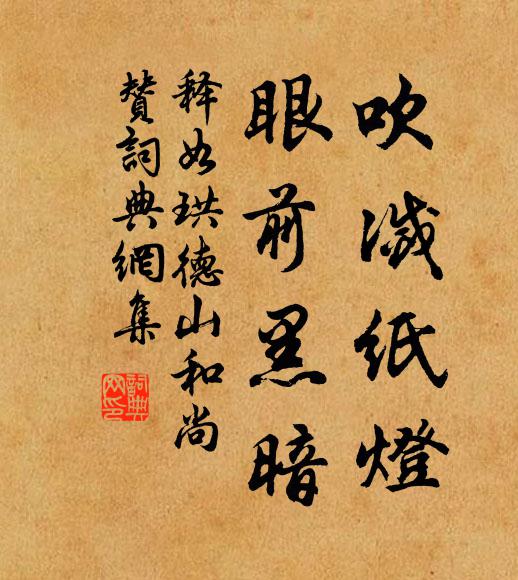 吹滅紙燈
眼前黑暗
释如珙德山和尚
贊詞典網集
詞典網印